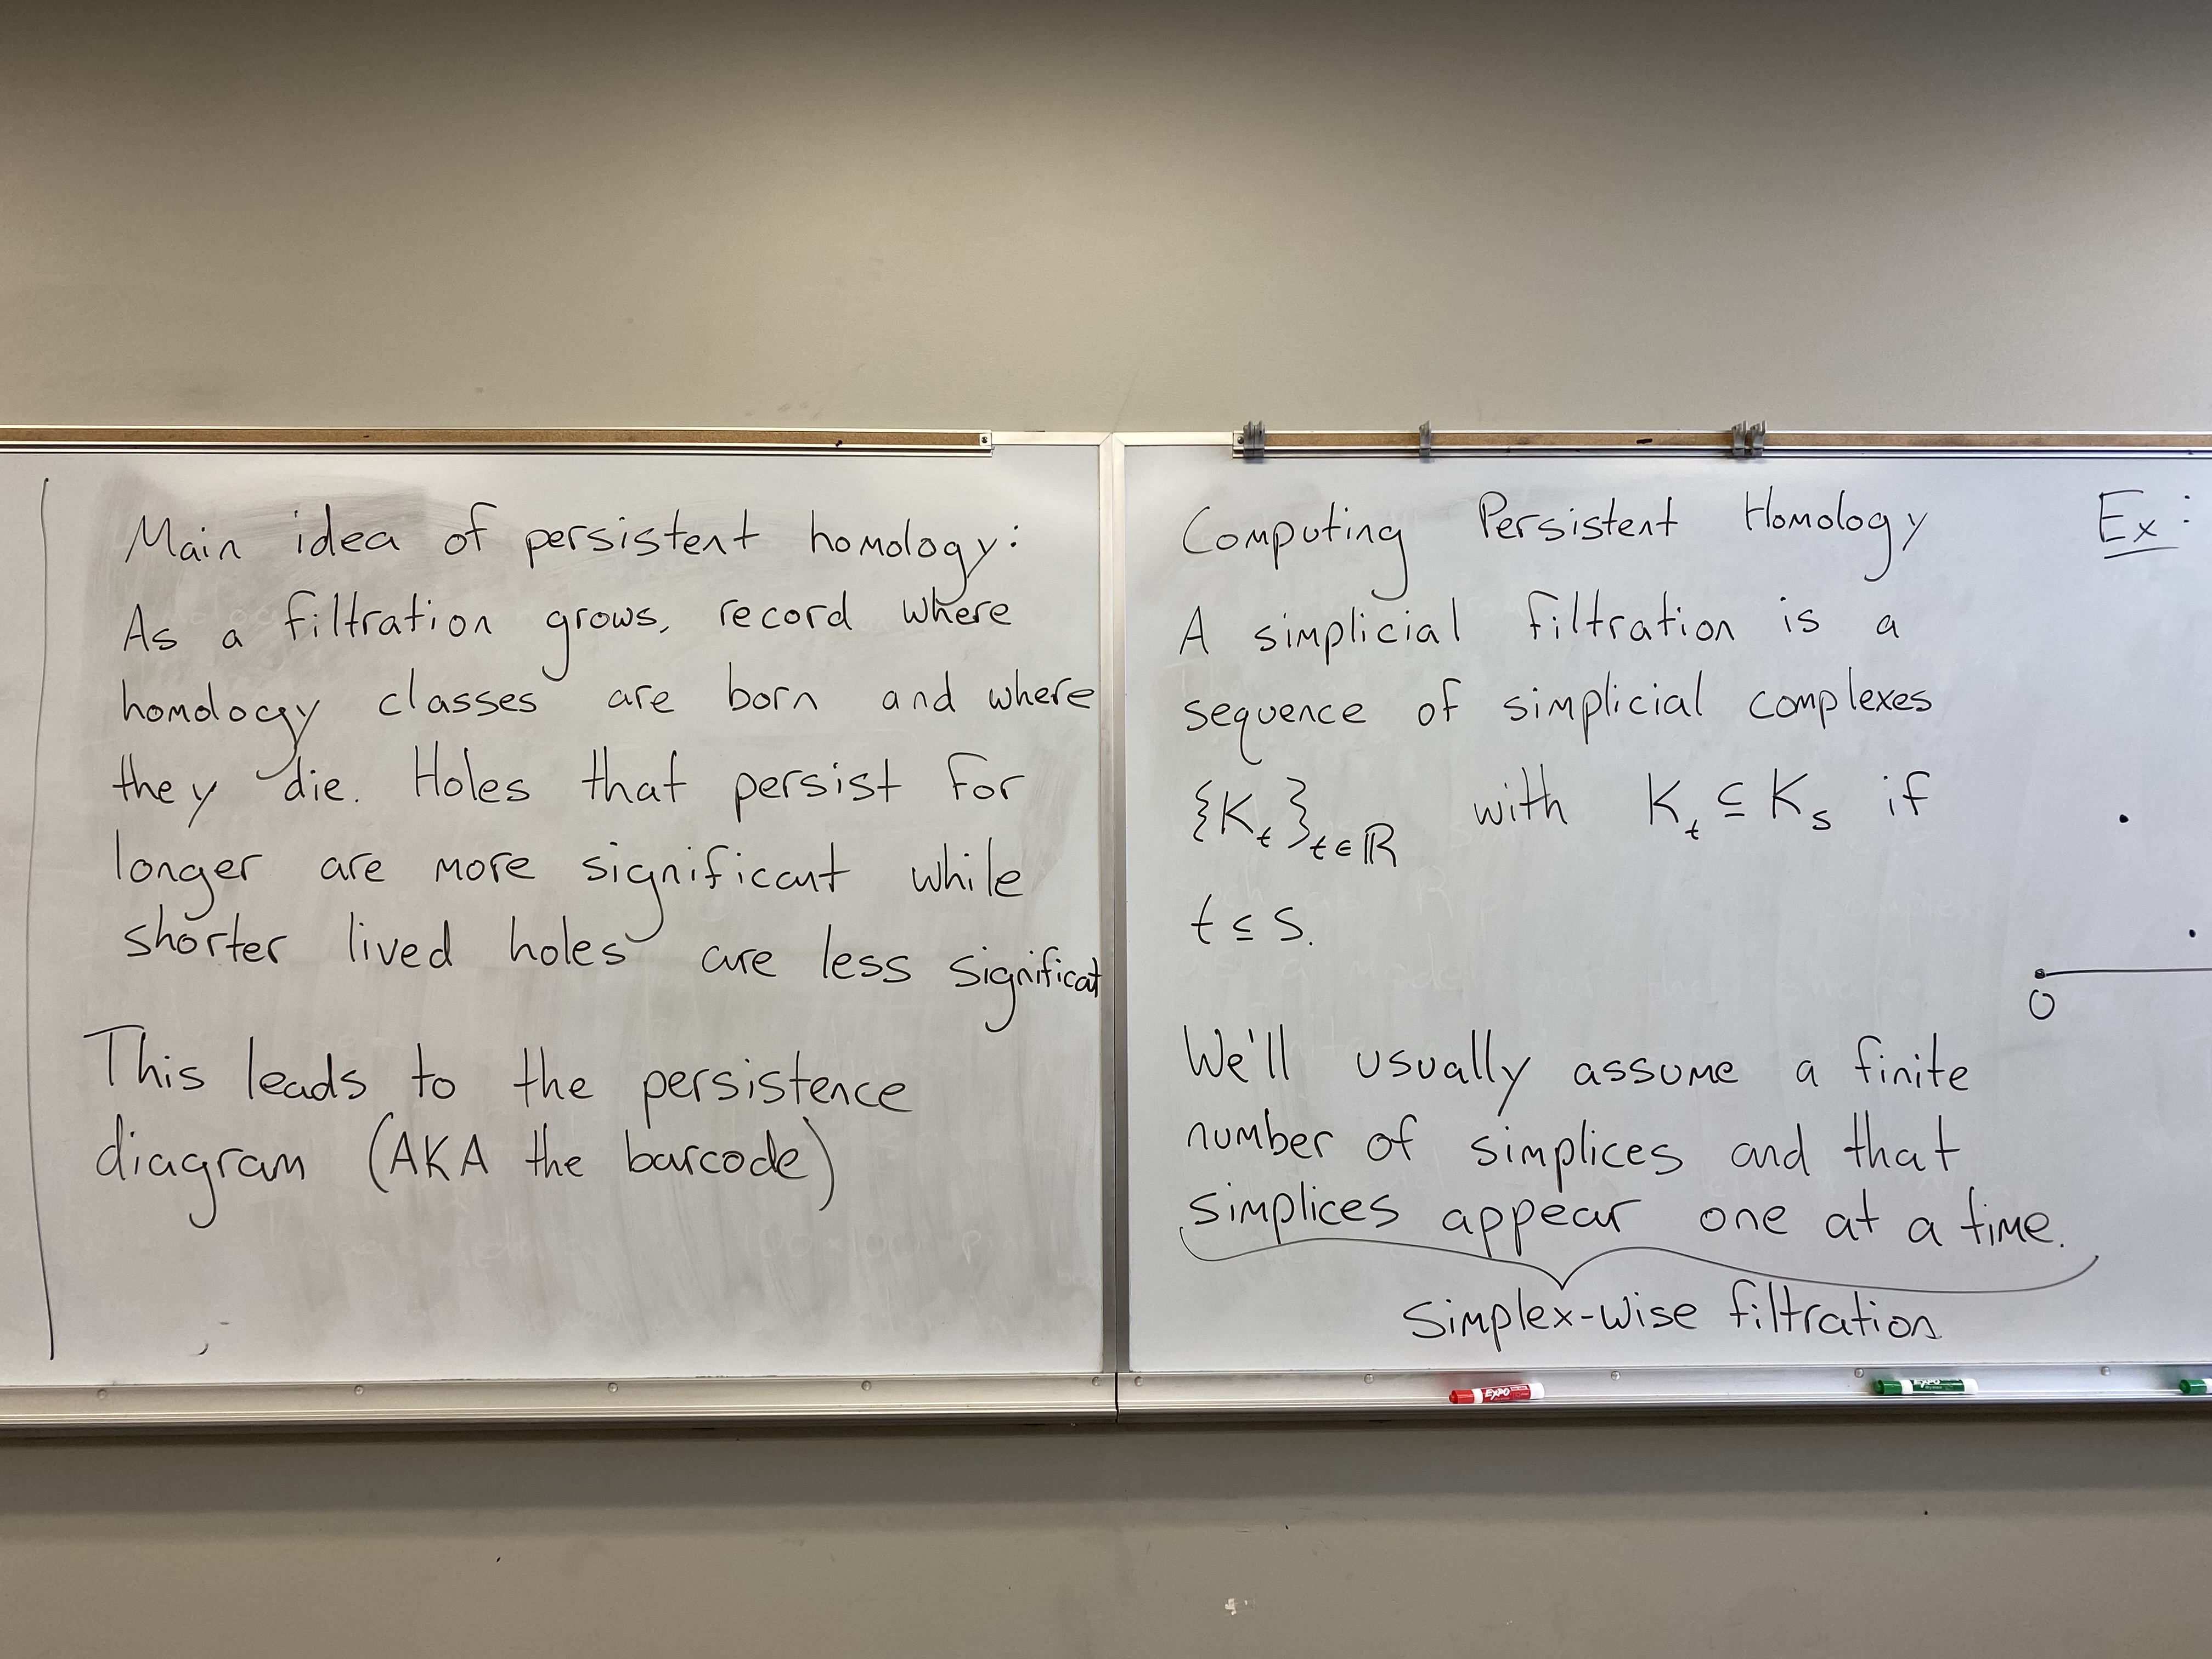 Main idea of persistent homology:
As a filtration grows, record where
homology classes are born and where
they die. Holes that persist for
longer are more significant while
shorter lived holes are less significat
This leads to the persistence
diagram (AKA the barcode)
Computing Persistent Homology
A simplicial filtration is a
sequence of simplicial complexes
{K_t}_{t∈ℝ} with K_t ⊆ K_s if
t ≤ s.
We'll usually assume a finite
number of simplices and that
simplices appear one at a time.
Simplex-wise filtration
Ex:
0
EXPO
EXPO